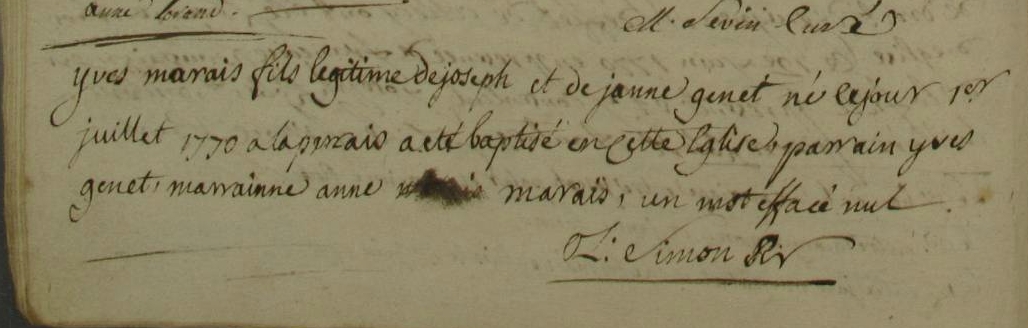 anne
M. Sevin Curé
yves marais fils legitime de joseph et de janne genet né cejour 1er
juillet 1770 a la a eté baptisé en Cette Eglise, parrain yves
genet, marrainne anne marais, un mot effacé nul
Simon